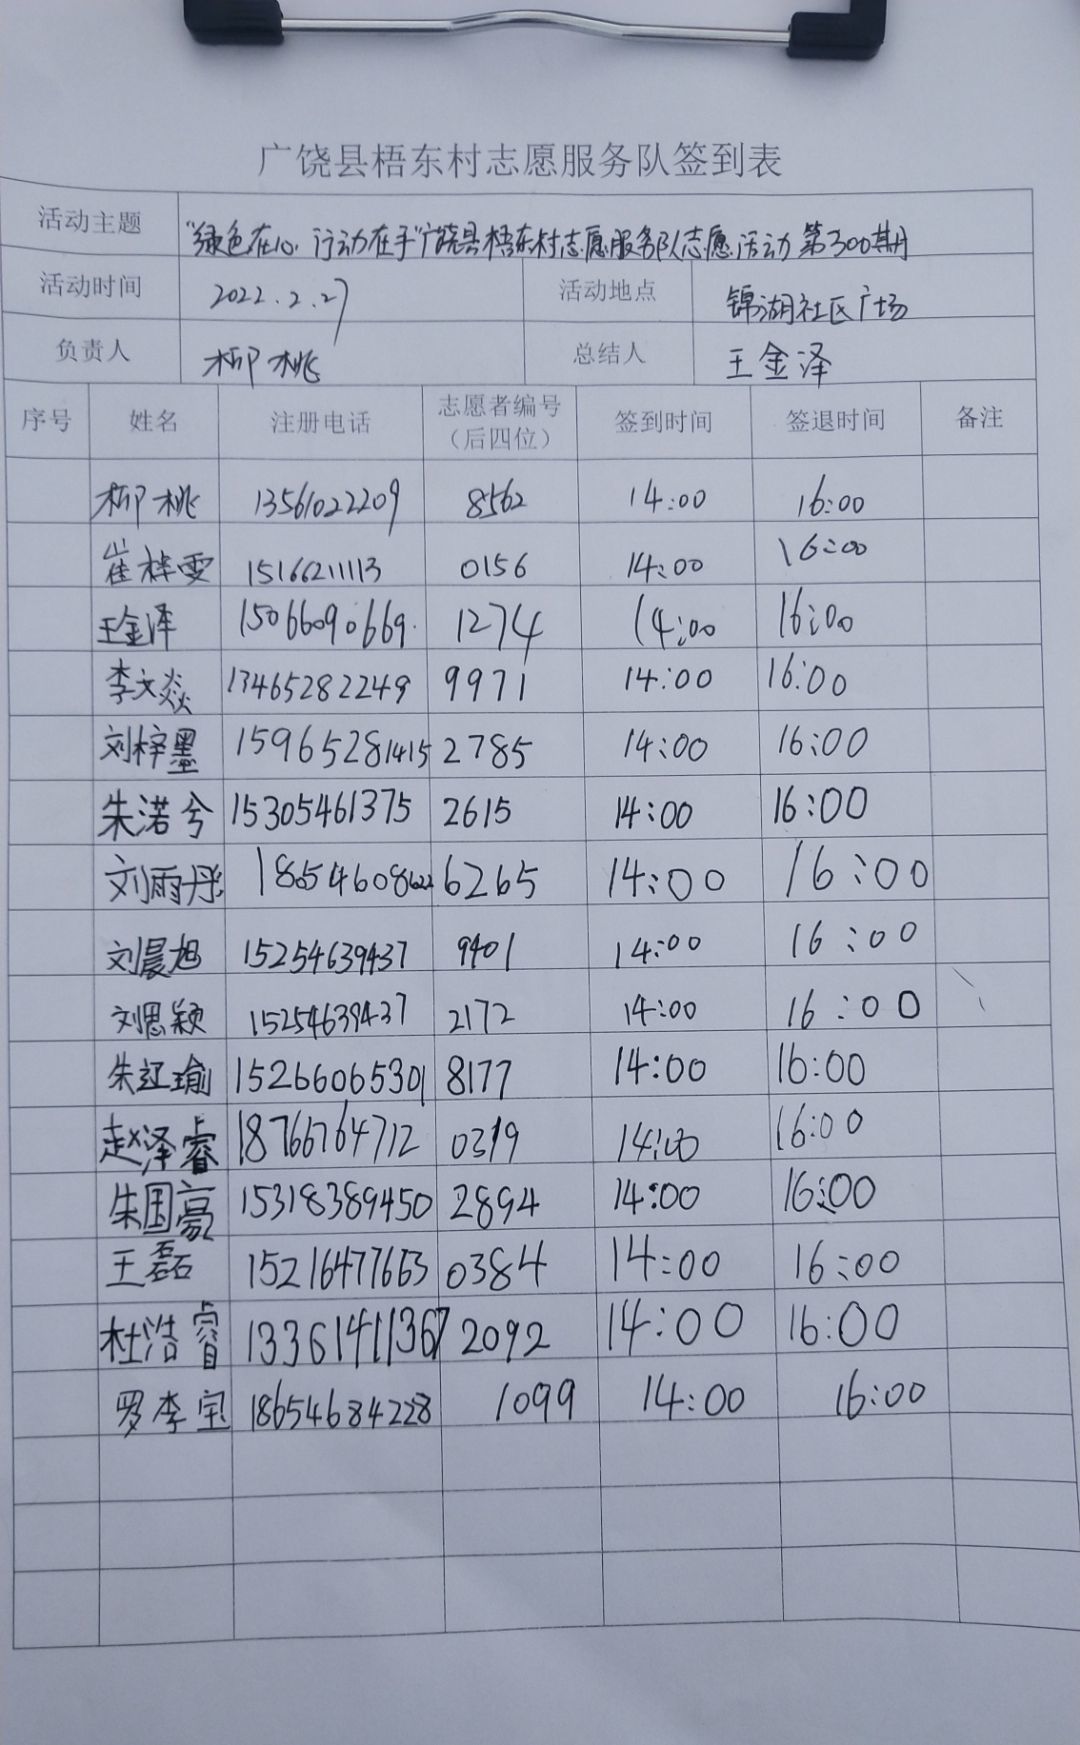 广饶县梧东村志愿服务队签到表
活动主题 "绿色在心 行动在手"广饶县梧东村志愿服务队志愿活动第300期
活动时间 2022.2.27 活动地点 锦湖社区广场
负责人 柳桃 总结人 王金泽
序号 姓名 注册电话 志愿者编号（后四位） 签到时间 签退时间 备注
柳桃 13561022209 8562 14:00 16:00
崔梓雯 15166211113 0156 14:00 16:00
王金泽 15066090669 1274 14:00 16:00
李文焱 13465282249 9971 14:00 16:00
刘梓墨 15965281415 2785 14:00 16:00
朱渃兮 15305461375 2615 14:00 16:00
刘雨彤 6265 14:00 16:00
刘晨旭 15254639437 9401 14:00 16:00
刘思颖 15254639437 2172 14:00 16:00
朱江瑜 15266065301 8177 14:00 16:00
赵泽睿 18766764712 0319 14:00 16:00
朱国豪 15318389450 2894 14:00 16:00
王磊 15216477663 0384 14:00 16:00
杜浩睿 13361411367 2092 14:00 16:00
罗李宝 18654684228 1099 14:00 16:00